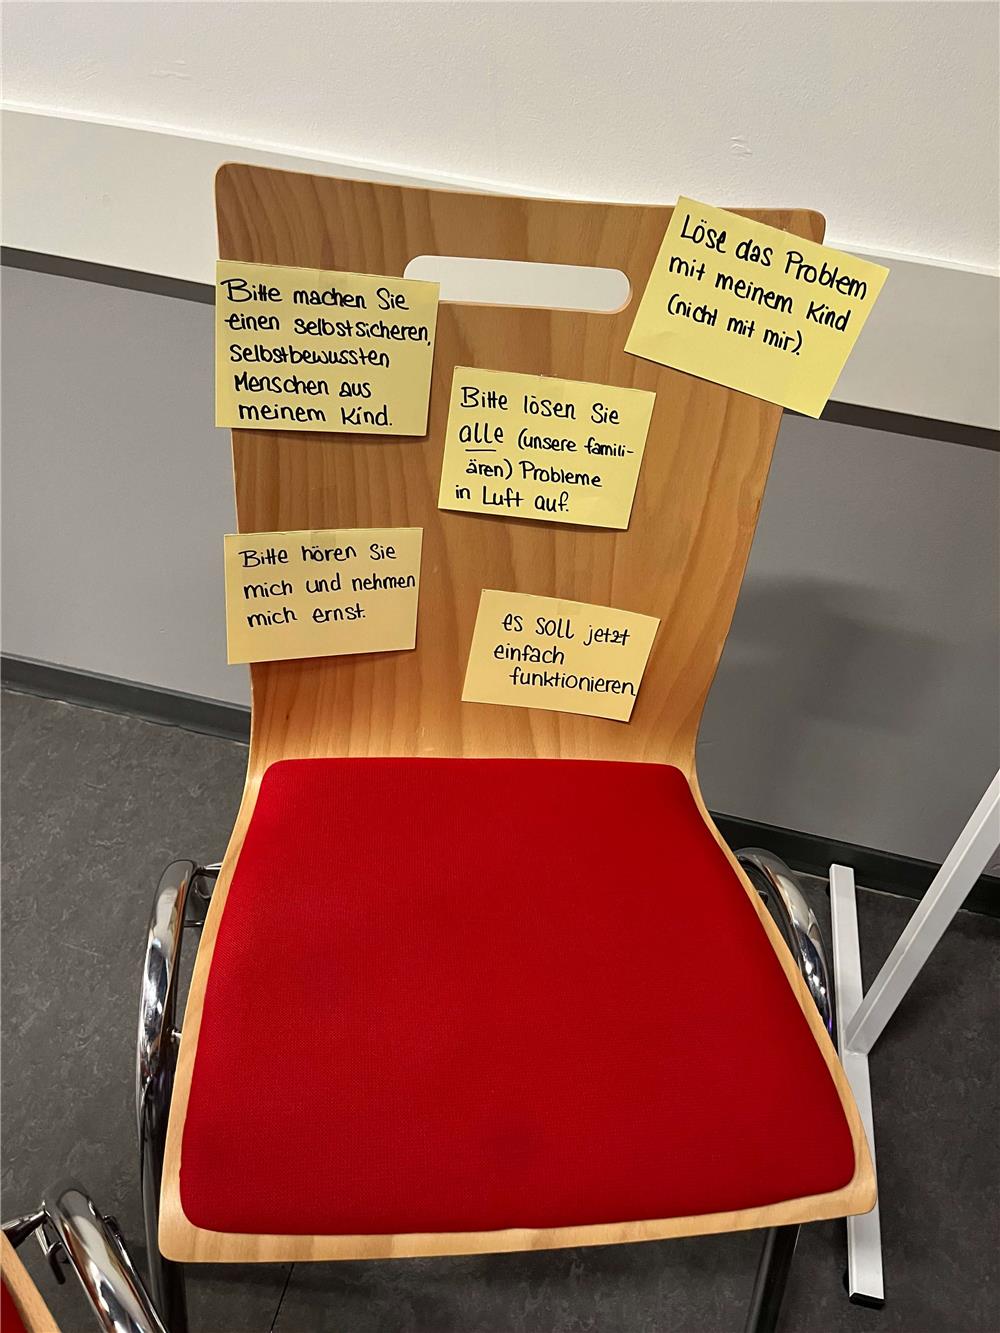 Bitte machen Sie
einen selbstsicheren,
selbstbewussten
Menschen aus
meinem Kind.
Löse das Problem
mit meinem Kind
(nicht mit mir).
Bitte lösen Sie
alle (unsere famili-
ären) Probleme
in Luft auf.
Bitte hören Sie
mich und nehmen
mich ernst.
es soll jetzt
einfach
funktionieren